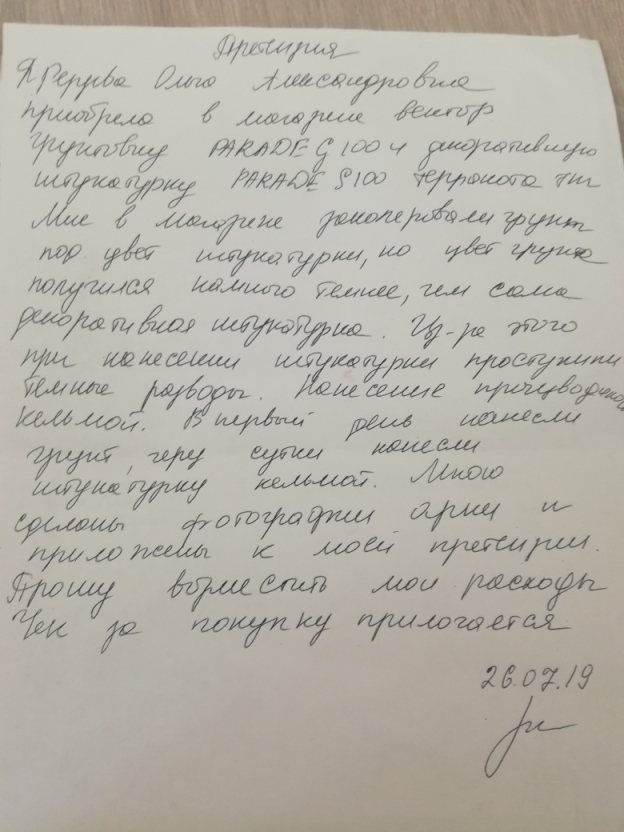 Претизия
Я Ольга Александровна
приобрела в магазине вектор
грунтовку PARADE G100 и декоративную
штукатурку PARADE S100 терракота
Мне в магазине заколеровали грунт
под цвет штукатурки, но цвет грунта
получился намного темнее, чем сама
декоративная штукатурка. Из-за этого
при нанесении штукатурки проступили
темные разводы. Нанесение
кельмой. В первый день нанесли
грунт, через сутки нанесли
штукатурку кельмой. Мною
сделаны фотографии арки и
приложены к моей претизии.
Прошу возместить мои расходы
Чек за покупку прилогается
26.07.19